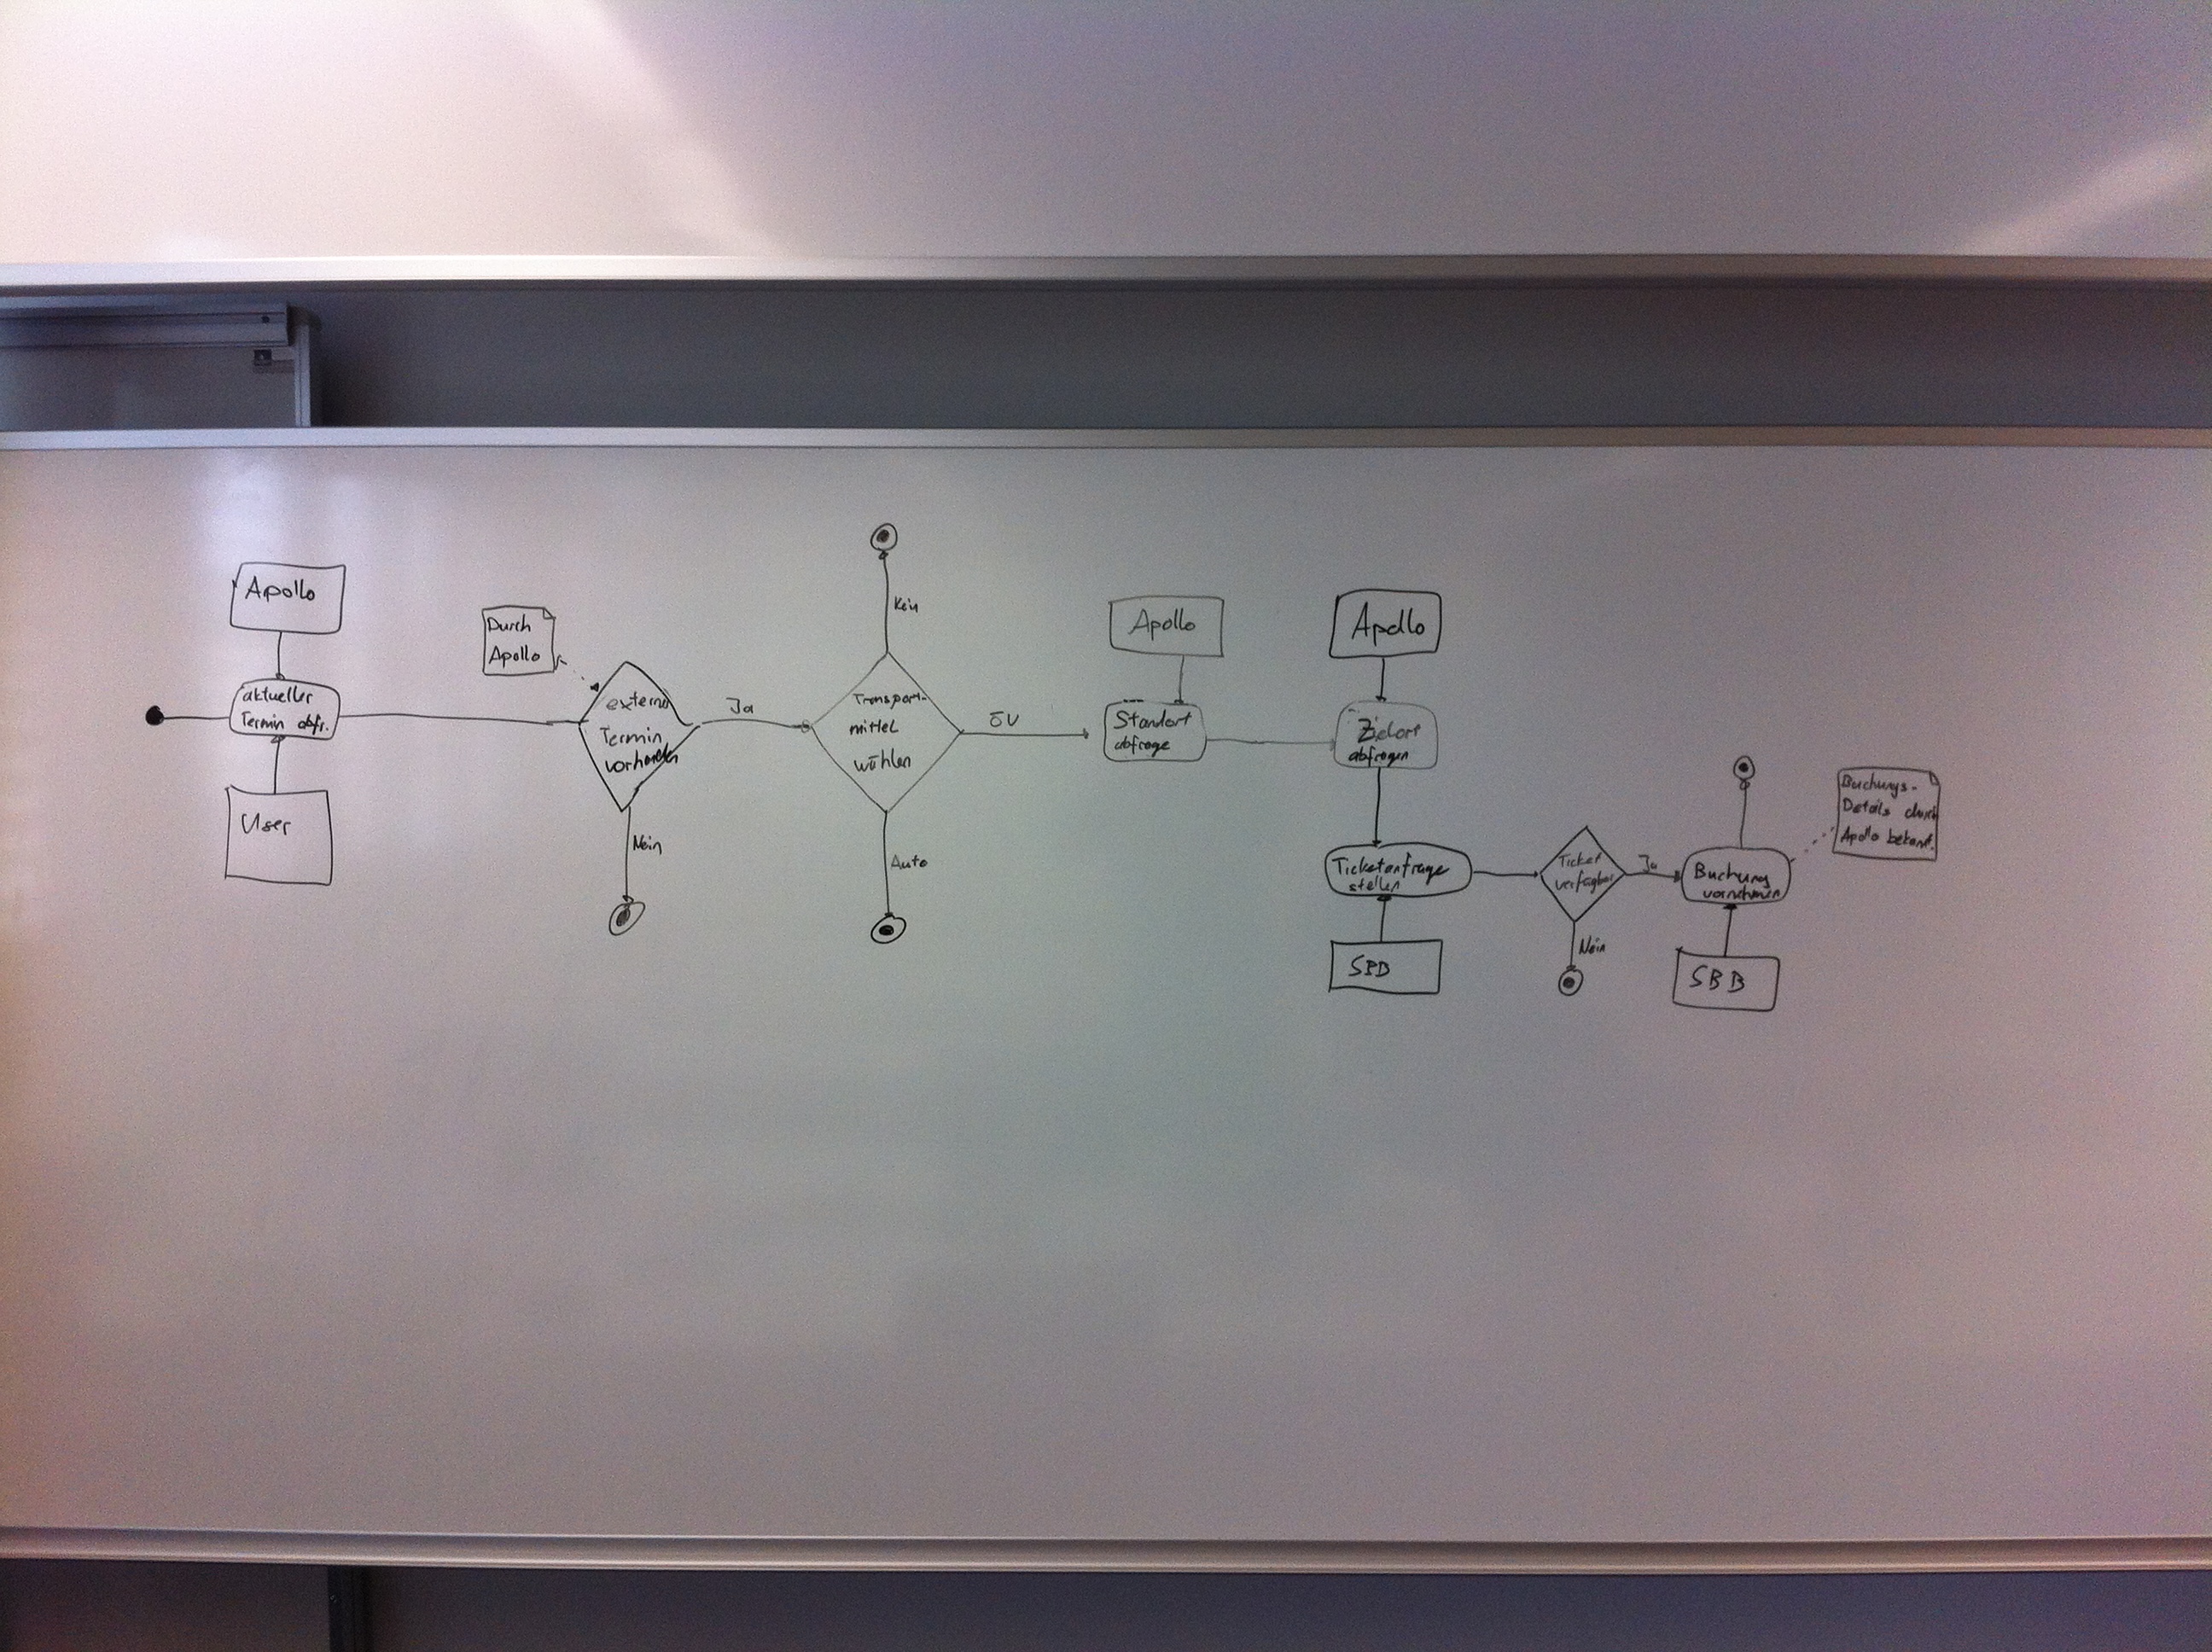 Apollo
aktueller
Termin abfr.
User
Durch
Apollo
externer
Termin
vorhanden
Ja
Nein
Kein
Transport-
mittel
wählen
Auto
ÖV
Apollo
Standort
abfrage
Apollo
Zielort
abfragen
Ticketanfrage
stellen
SBB
Ticket
verfügbar
Ja
Nein
Buchung
vornehmen
SBB
Buchungs-
Details durch
Apollo bekannt.